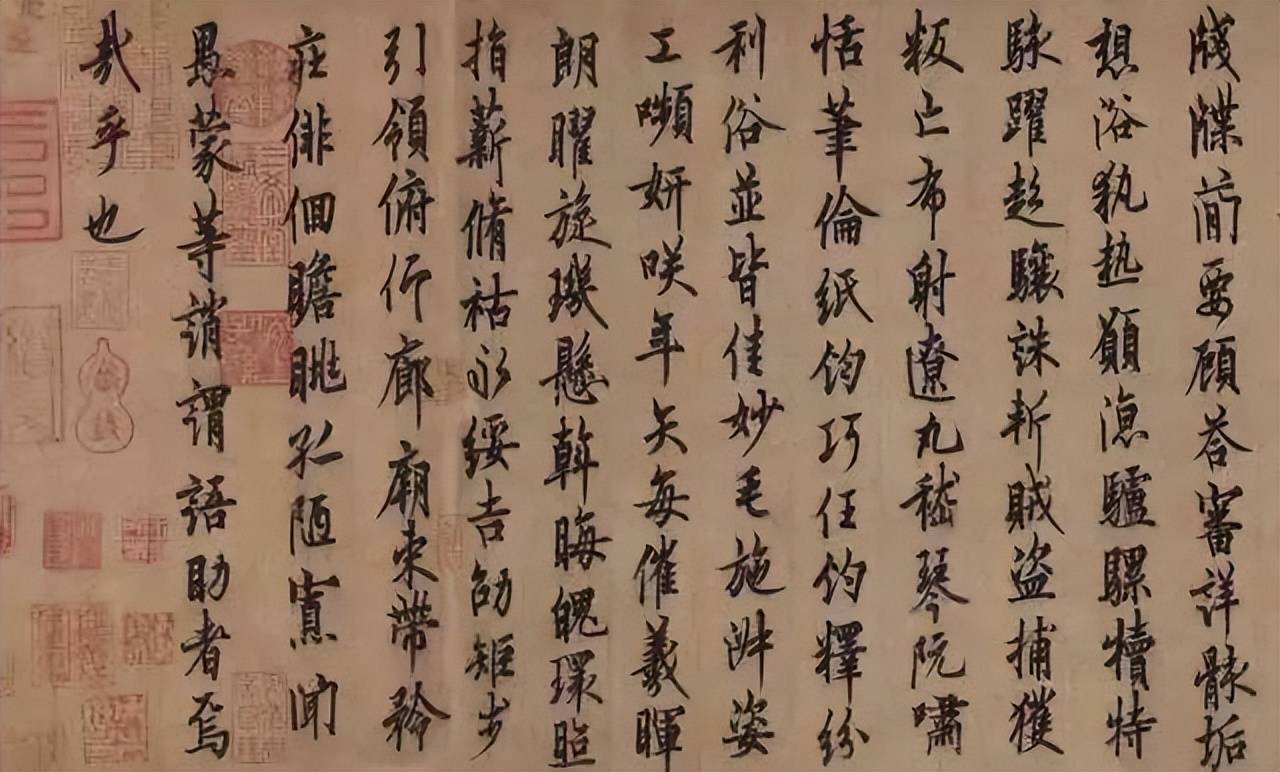 牋牒蕳要顧荅審詳骸垢
想浴執熱願涼驢騾犢特
駭躍超驤誅斬賊盜捕獲
叛亡布射遼丸嵇琴阮嘯
恬筆倫紙鈞巧任釣釋紛
利俗並皆佳妙毛施淑姿
工嚬妍咲年矢每催羲暉
朗曜旋璣懸斡晦魄環照
指薪脩祜永綏吉劭矩步
引領俯仰廊廟束帶矜
莊俳佪瞻眺孤陋寡聞
愚蒙等誚謂語助者焉
哉乎也